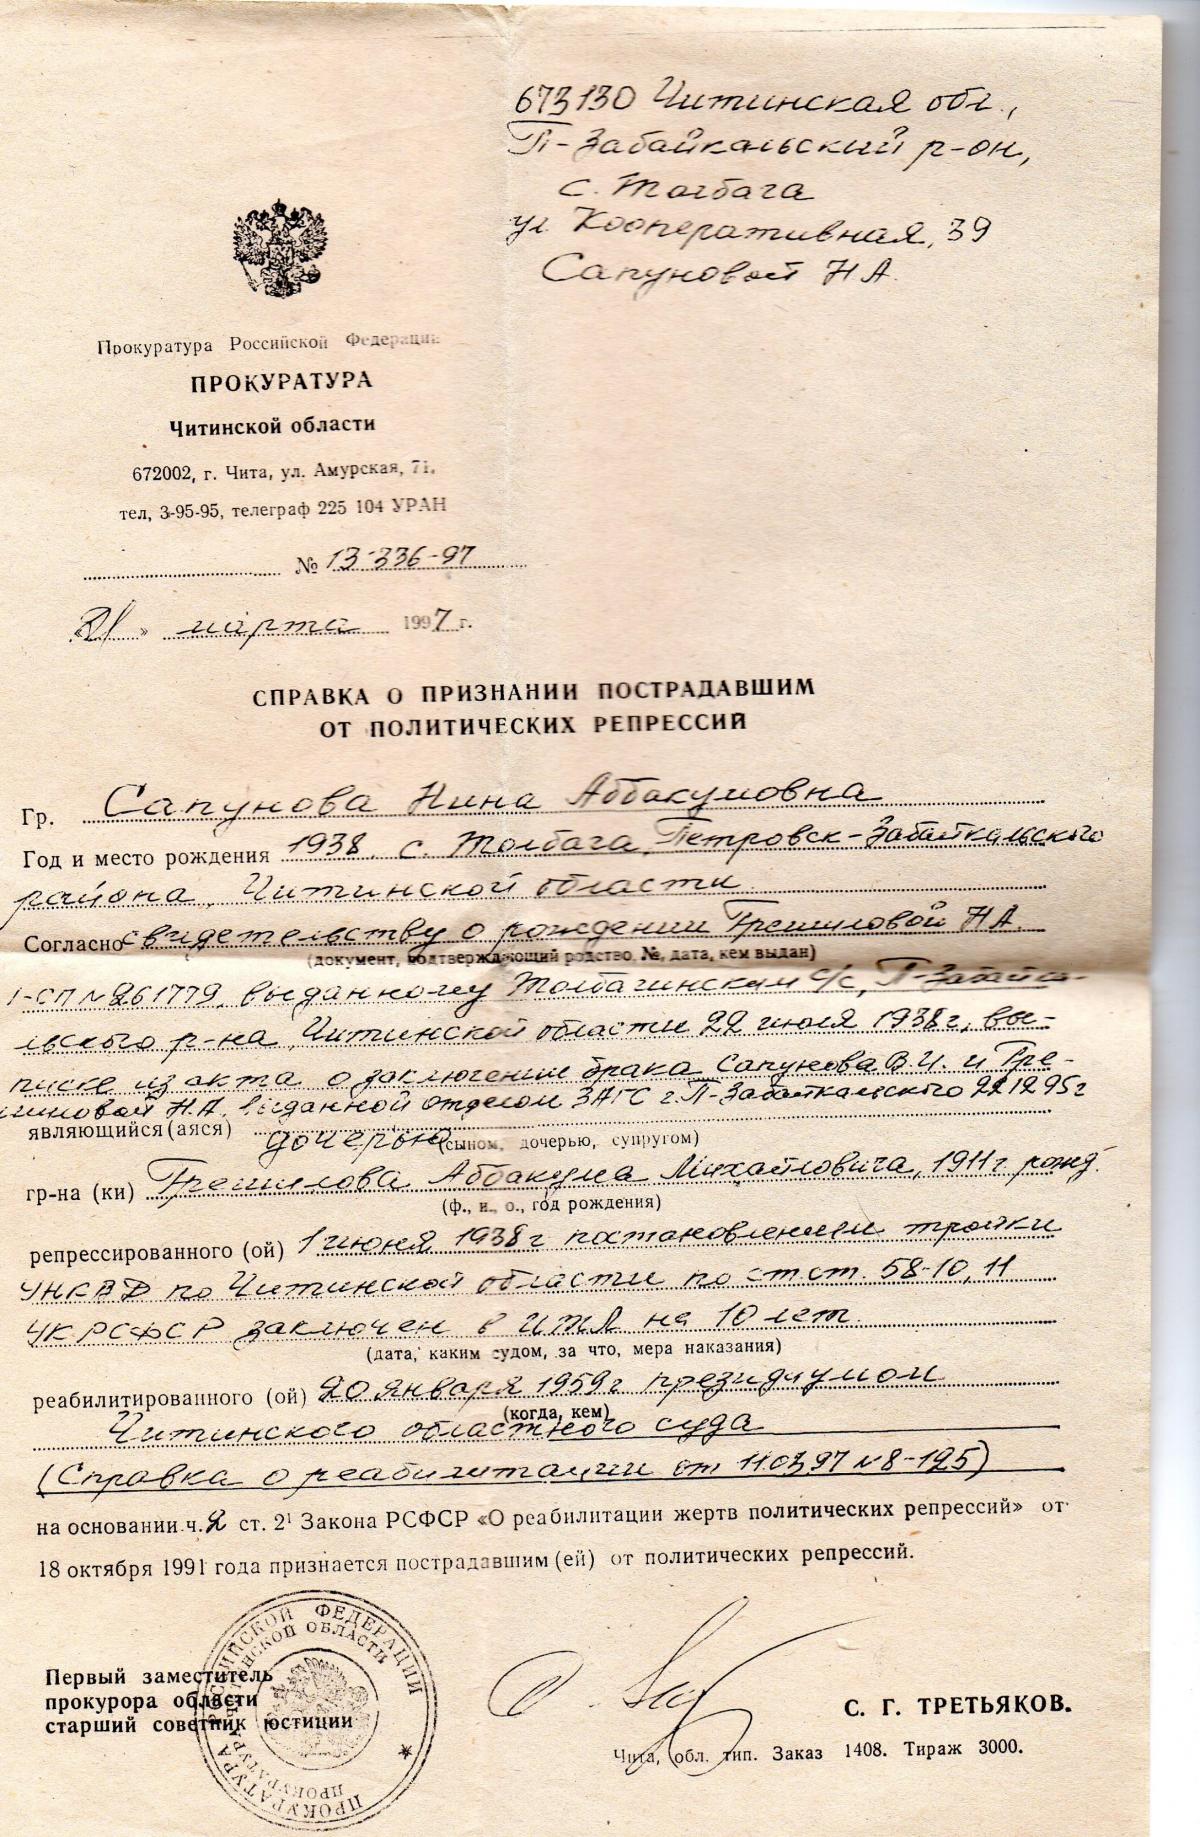 673130 Читинская обл.,
П-Забайкальский р-он,
с. Толбага
ул. Кооперативная, 39
Сапуновой Н.А.
Прокуратура Российской Федерации
ПРОКУРАТУРА
Читинской области
672002, г. Чита, ул. Амурская, 71.
тел, 3-95-95, телеграф 225 104 УРАН
№ 13-336-97
«21» марта 1997 г.
СПРАВКА О ПРИЗНАНИИ ПОСТРАДАВШИМ
ОТ ПОЛИТИЧЕСКИХ РЕПРЕССИЙ
Гр. Сапунова Нина Аббакумовна
Год и место рождения 1938, с. Толбага, Петровск-Забайкальского
района, Читинской области
Согласно свидетельству о рождении Грешиловой Н.А.
(документ, подтверждающий родство, №, дата, кем выдан)
I-СП №261779, выданному Толбагинским с/с, П-Забайка-
льского р-на, Читинской области 22 июля 1938 г, вы-
писке из акта о заключении брака Сапунова В.И. и Гре-
шиловой Н.А. выданной отделом ЗАГС г. П-Забайкальского 22.12.95 г
являющийся (аяся) дочерью
(сыном, дочерью, супругом)
гр-на (ки) Грешилова Аббакума Михайловича, 1911 г. рожд.
(ф., и., о., год рождения)
репрессированного (ой) 1 июня 1938 г постановлением тройки
УНКВД по Читинской области по ст.ст. 58-10, 11
УК РСФСР заключен в ИТЛ на 10 лет.
(дата, каким судом, за что, мера наказания)
реабилитированного (ой) 20 января 1959 г президиумом
(когда, кем)
Читинского областного суда
(Справка о реабилитации от 11.03.97 №8-125)
на основании ч. 2 ст. 2¹ Закона РСФСР «О реабилитации жертв политических репрессий» от
18 октября 1991 года признается пострадавшим (ей) от политических репрессий.
Первый заместитель
прокурора области
старший советник юстиции
С. Г. ТРЕТЬЯКОВ.
Чита, обл. тип. Заказ 1408. Тираж 3000.
ПРОКУРАТУРА РОССИЙСКОЙ ФЕДЕРАЦИИ
ПРОКУРАТУРА ЧИТИНСКОЙ ОБЛАСТИ